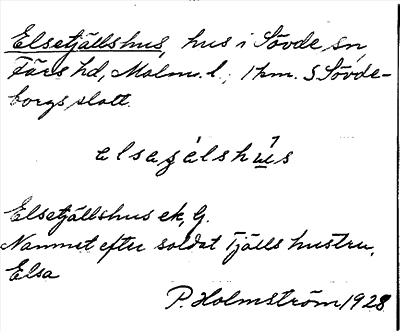 Elsetjällshus, hus i Sövde sn,
Färs hd, Malm. l., 1 km. S Sövde-
borgs slott.
Elsetjällshus ek, G.
Namnet efter soldat Tjälls hustru,
Elsa
P. Holmström 1928